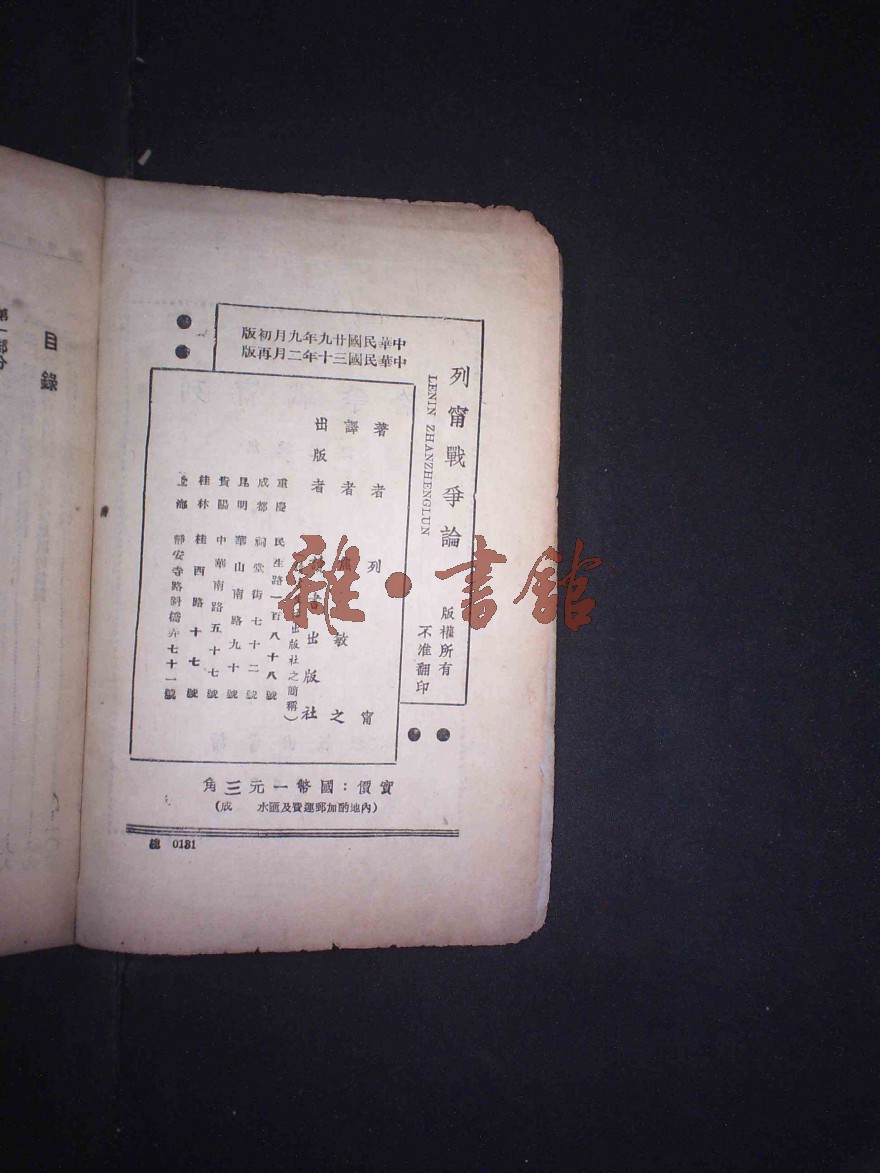 列甯戰爭論
LENIN ZHANZHENGLUN
版權所有
不准翻印
中華民國廿九年九月初版
中華民國三十年二月再版
著者 列甯
譯者 敏之
出版者 書出版社
出版社之簡稱)
重慶 民生路一百八十八號
成都 祠堂街七十二號
昆明 華山南路九十號
貴陽 中華南路五十七號
桂林 桂西路十七號
上海 靜安寺路斜橋弄七十一號
實價:國幣一元三角
(內地酌加郵運費及匯水 成)
總 0131
目錄
第一部分
雜·書館